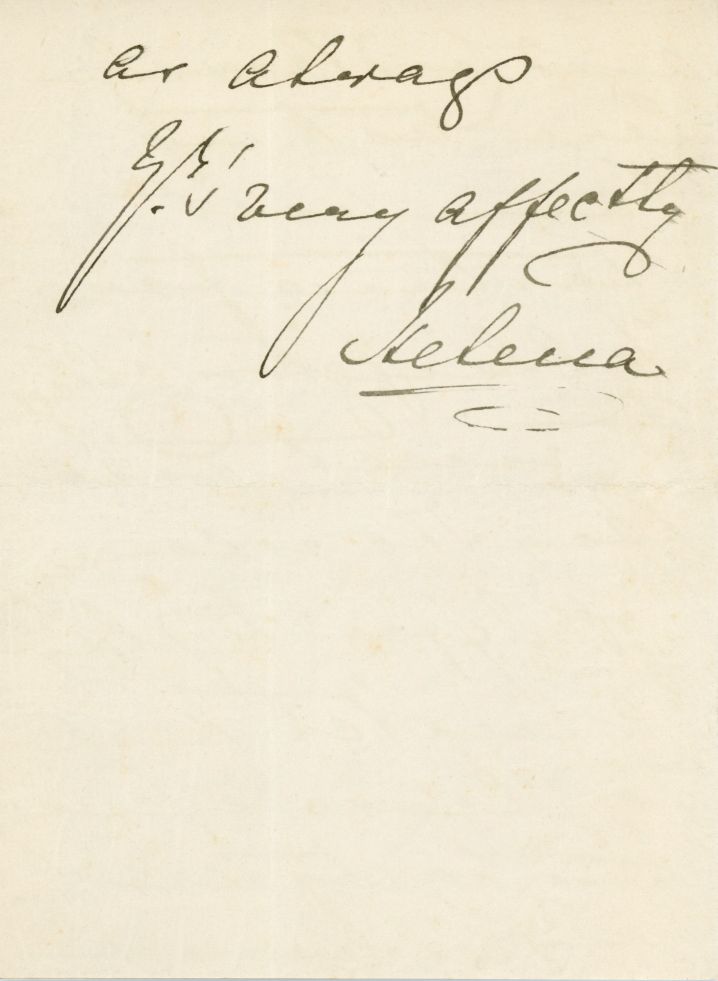 as always
Yrs very affectly
Helena